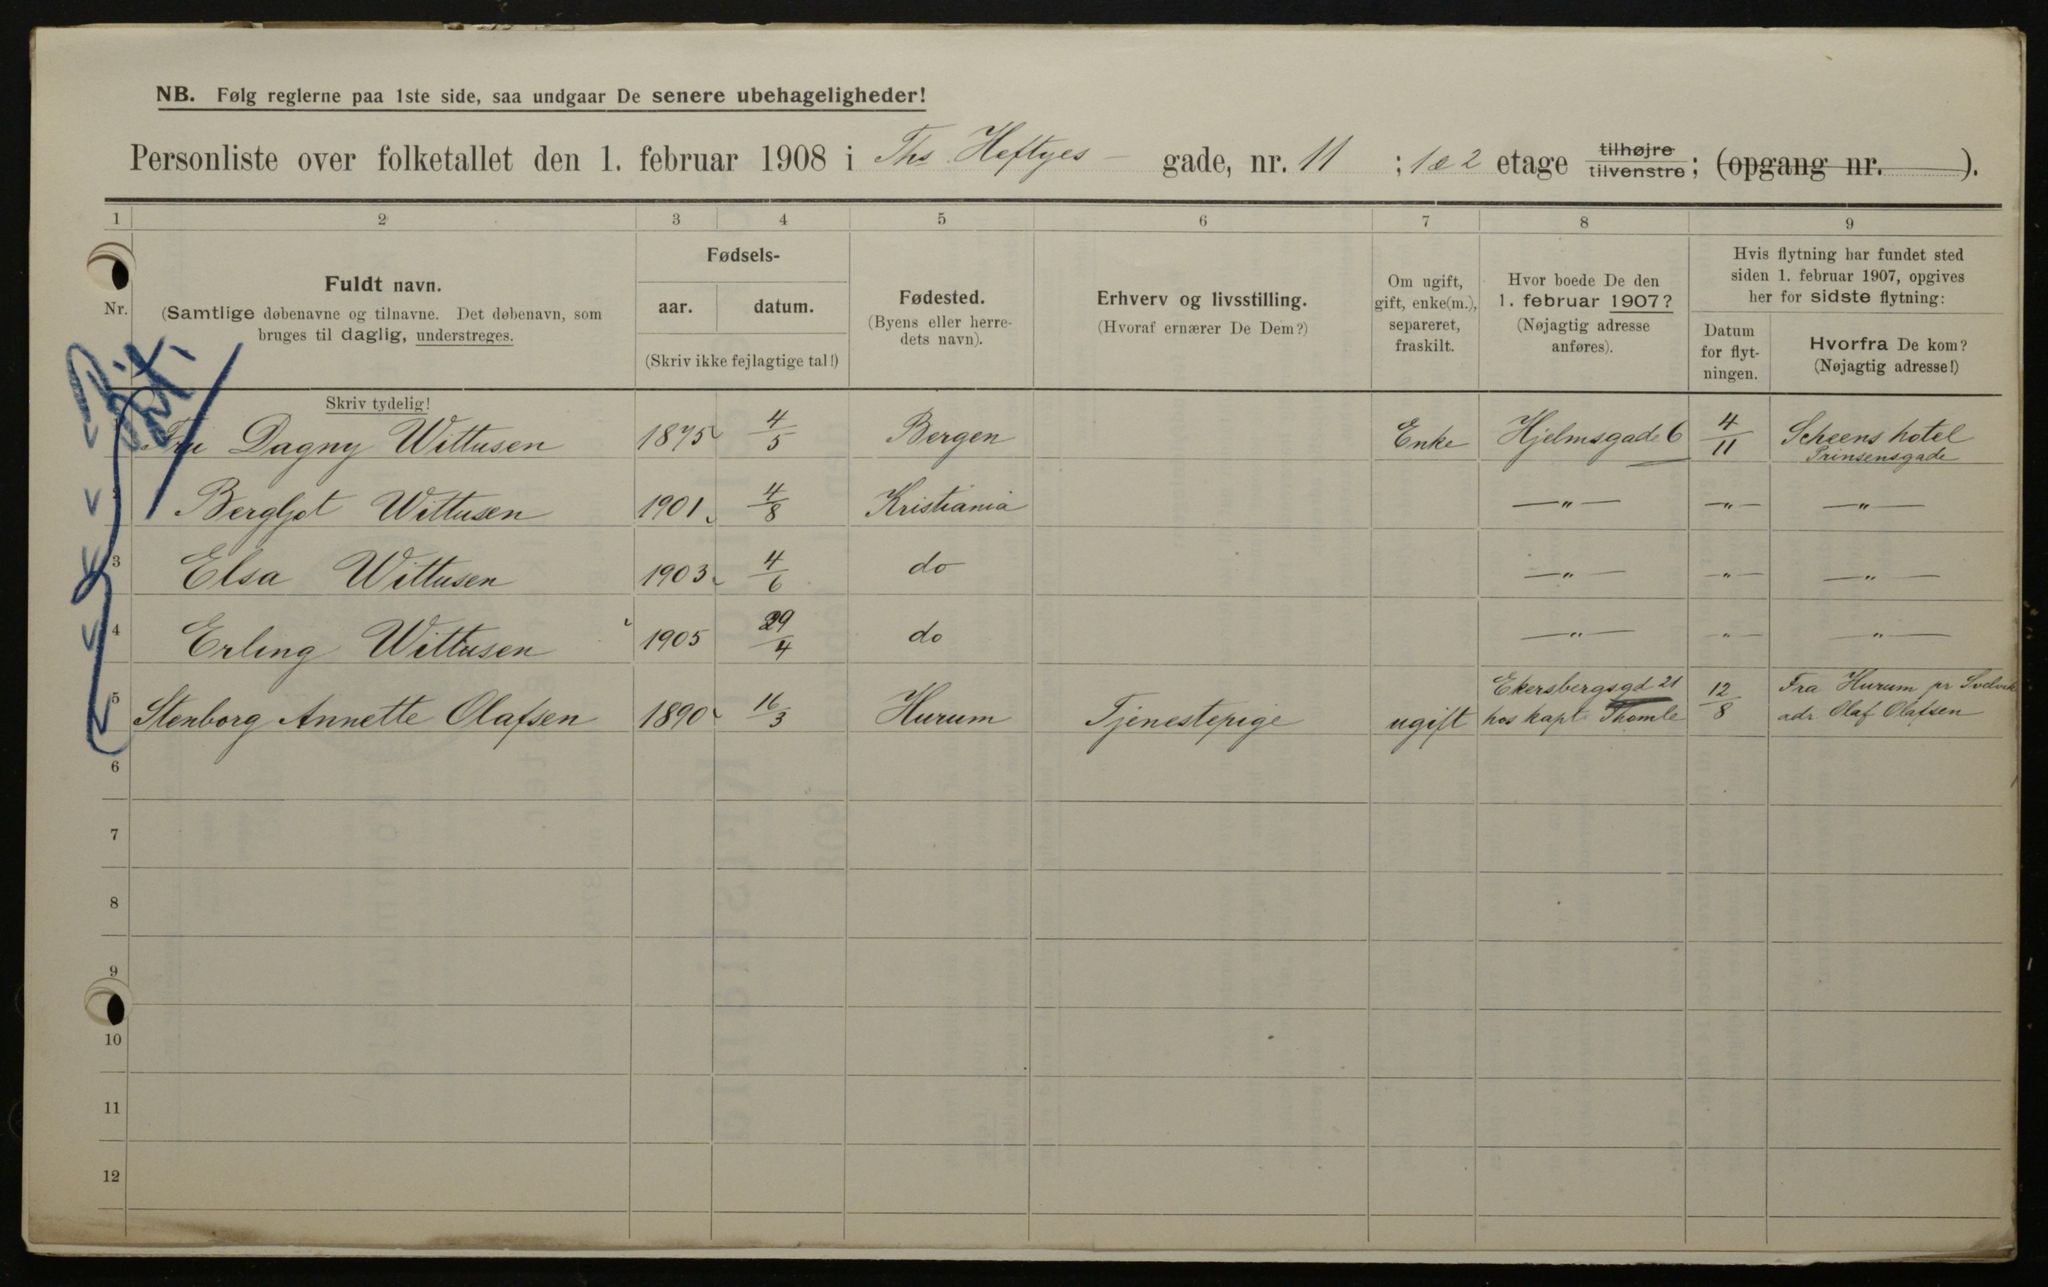 NB. Følg reglerne paa 1ste side, saa undgaar De senere ubehageligheder!
Personliste over folketallet den 1. februar 1908 i Ths. Heftyes - gade, nr. 11 ; 1 & 2 etage tilhøjre tilvenstre; (opgang nr. ).
1 2 3 4 5 6 7 8 9
Nr.
Fuldt navn.
(Samtlige døbenavne og tilnavne. Det døbenavn, som
bruges til daglig, understreges.
Skriv tydelig!
Fødsels-
aar. datum.
(Skriv ikke fejlagtige tal!)
Fødested.
(Byens eller herre-
dets navn).
Erhverv og livsstilling.
(Hvoraf ernærer De Dem?)
Om ugift,
gift, enke(m.),
separeret,
fraskilt.
Hvor boede De den
1. februar 1907?
(Nøjagtig adresse
anføres).
Hvis flytning har fundet sted
siden 1. februar 1907, opgives
her for sidste flytning:
Datum
for flyt-
ningen.
Hvorfra De kom?
(Nøjagtig adresse!)
Fru Dagny Wittusen 1875 4/5 Bergen Enke Hjelmsgade 6 4/11 Scheens hotel
Prinsensgade
2 Bergljot Wittusen 1901 4/8 Kristiania —„— —„— —„—
3 Elsa Wittusen 1903 4/6 do —„— —„— —„—
4 Erling Wittusen 1905 29/4 do —„— „ —„—
5 Stenborg Annette Olafsen 1890 16/3 Hurum Tjenestepige ugift Ekersbergsgd 21 12/8 Fra Hurum pr Svelvik
hos kapt Thomle adr Olaf Olafsen
6
7
8
9
10
11
12